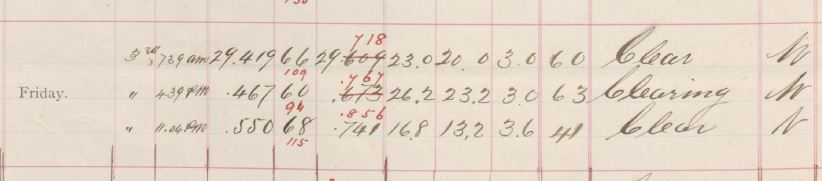 718
3rd 7.39 am 29.419 66 29.609 23.0 20.0 3.0 60 Clear N
109 .767
Friday. " 4.39 PM .467 60 .673 26.2 23.2 3.0 63 Clearing N
94 .856
" 11.04 PM .550 68 .741 16.8 13.2 3.6 41 Clear N
115